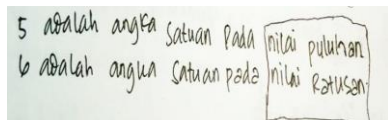 5 adalah angka satuan pada nilai puluhan
6 adalah angka satuan pada nilai Ratusan.